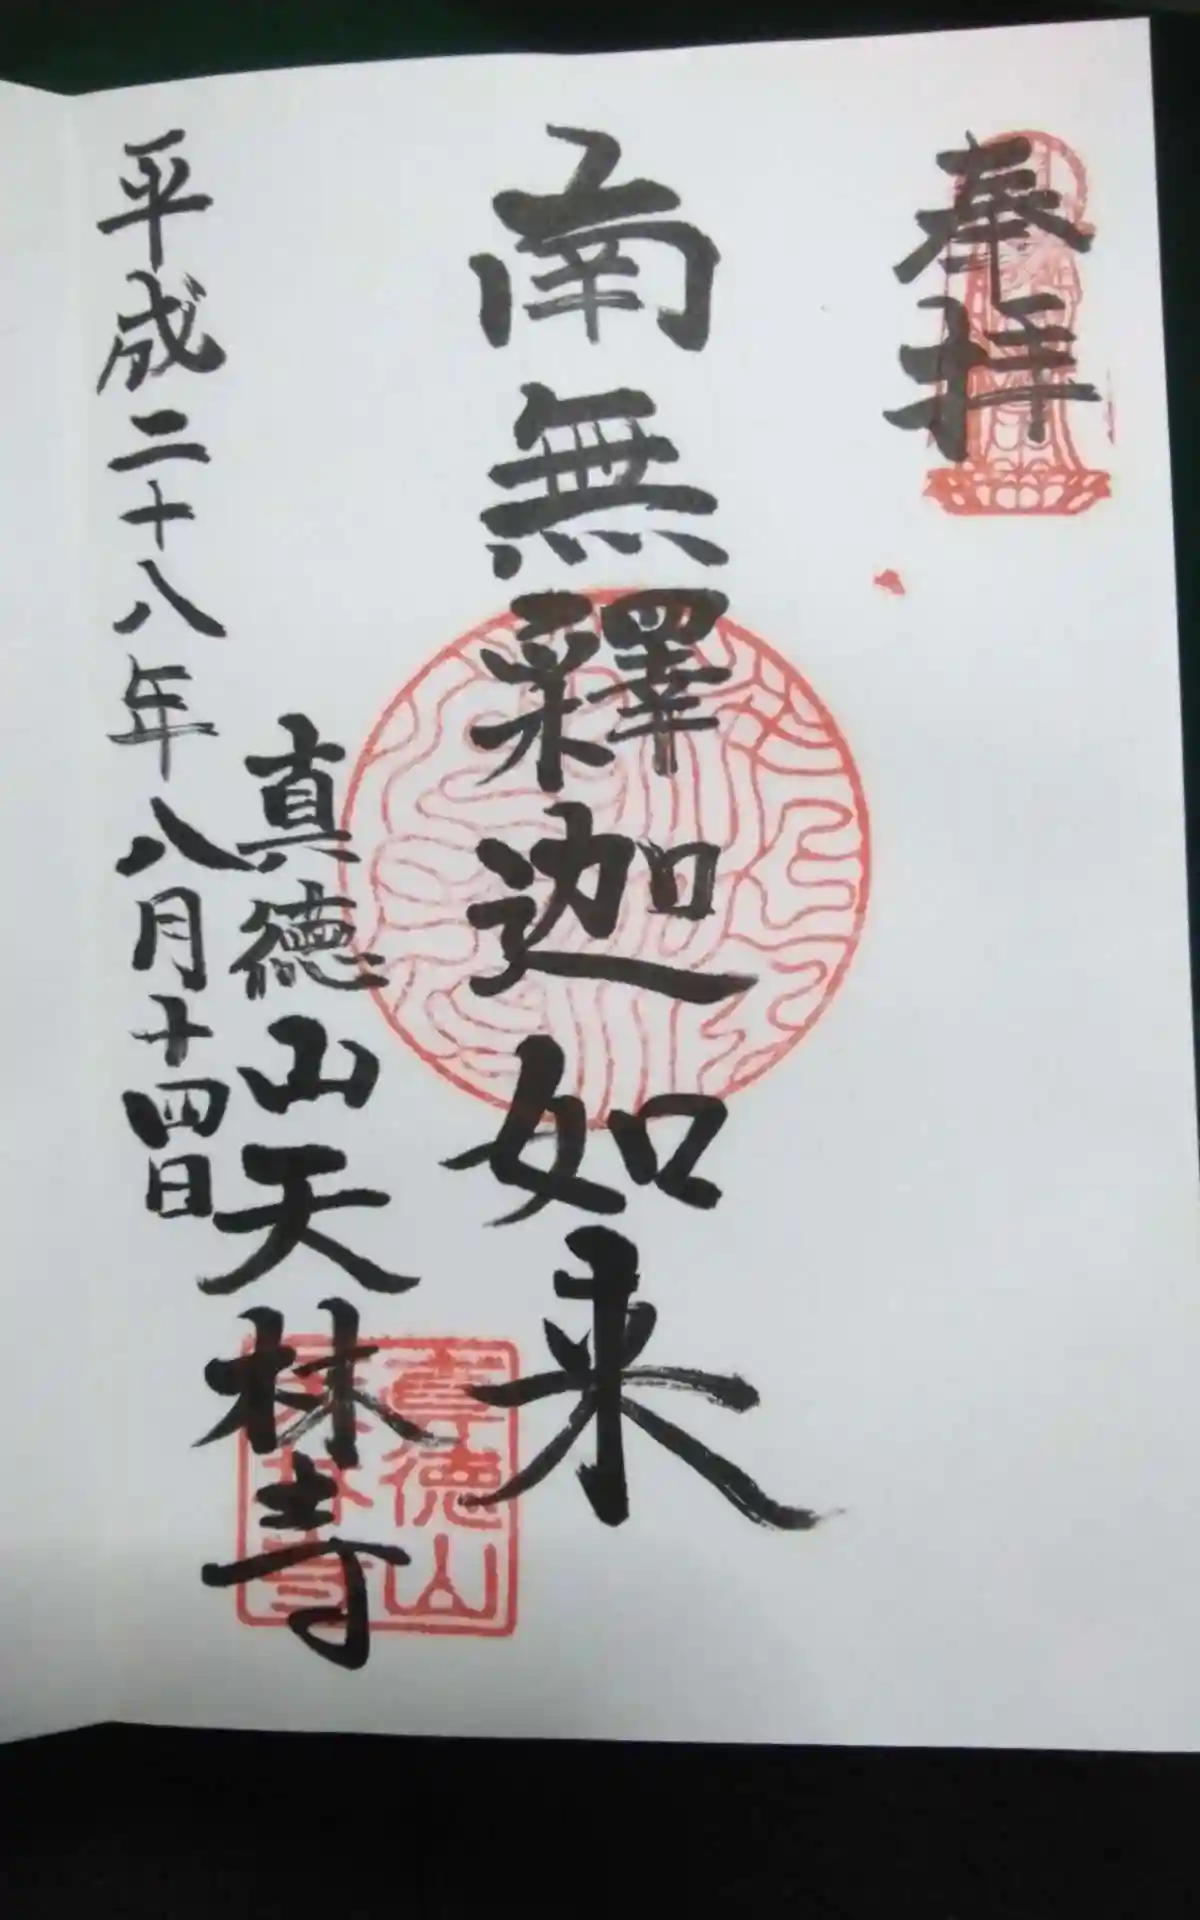 奉拝
南無釋迦如来
真徳山天林寺
平成二十八年八月十四日
真徳山
天林寺